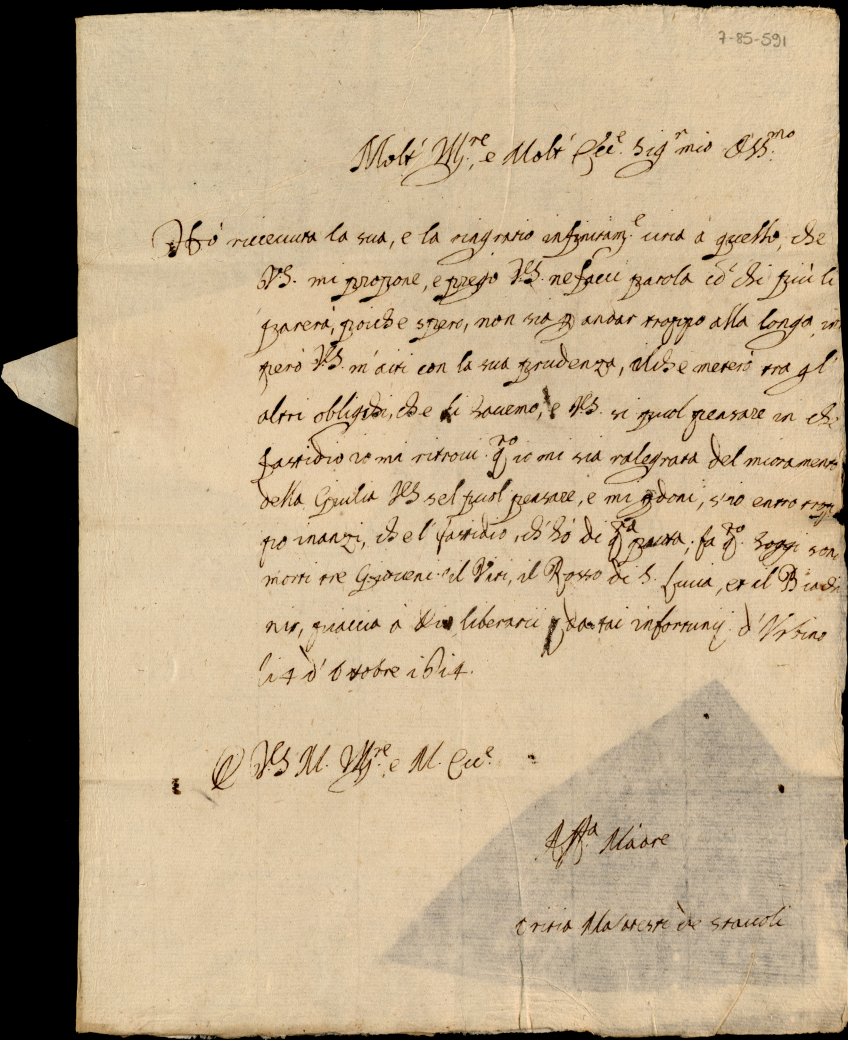 7-85-591
Molt' Ill.re, e Molt' Ecc.e Sig.r mio Oss.mo
Hò riceuuta la sua, e la ringratio infinitam.e circa à quello, che
V.S. mi propone, e prego V.S. ne facci parola cō chi più li
parerà, poiche spero, non sia p andar troppo alla longa,
però V.S. m'aiti con la sua prudenza, ilche meterò tra gl'
altri oblighi, che li hauemo, e V.S. si puol pensare in che
fastidio io mi ritroui. q.to io mi sia ralegrata del
della Giulia V.S. sel puol pensare, e mi pdoni, s'io entro trop
po inanzi, che l' fastidio, ch' hò di q.ta putta, fa q.to. hoggi sono
morti tre Gioueni il Viti, il Rosso di S. Lucia, et il
nir, piaccia à Dio liberarci da tai infortunij. d' Vrbino
li 4 d' Ottobre 1614.
D V.S. M. Ill.re, e M. Ecc.e
Aff.a Madre
de Staccoli